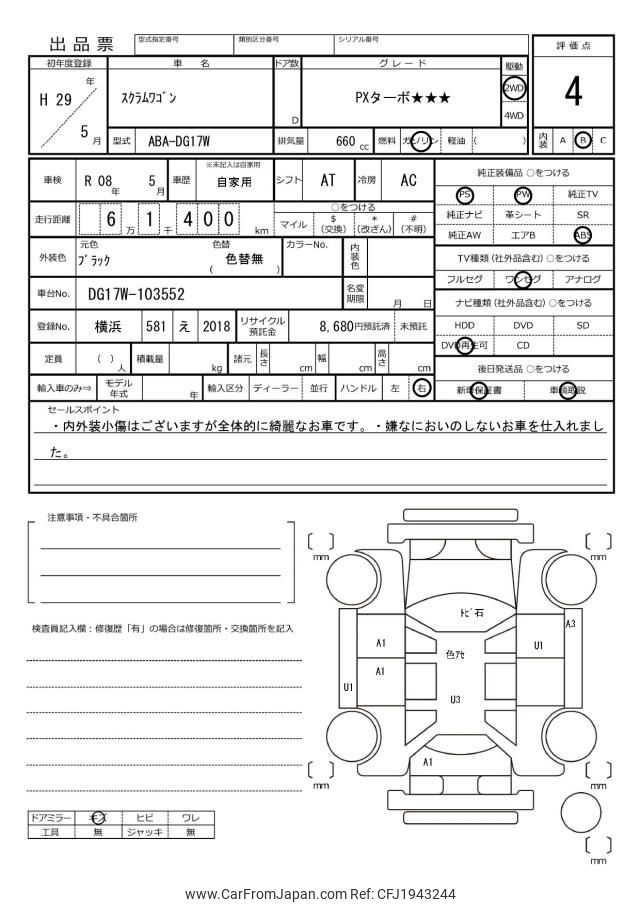 出品票 型式指定番号 類別区分番号 シリアル番号
評価点
初年度登録 車名 ドア数 グレード 駆動
H 29 年 5 月
スクラムワゴン D PXターボ★★★ 2WD
4WD
4
型式 ABA-DG17W 排気量 660 cc 燃料 ガソリン 軽油 ( )
内装 A B C
車検 R 08 年 5 月 車歴 ※未記入は自家用 自家用 シフト AT 冷房 AC
純正装備品 ○をつける
PS PW 純正TV
純正ナビ 革シート SR
純正AW エアB ABS
走行距離 6 万 1 千 4 0 0 km
○をつける
マイル $ (交換) * (改ざん) # (不明)
外装色 元色 ブラック 色替 ( 色替無 ) カラーNo. 内装色
TV種類 (社外品含む) ○をつける
フルセグ ワンセグ アナログ
車台No. DG17W-103552 名変期限 月 日
ナビ種類 (社外品含む) ○をつける
登録No. 横浜 581 え 2018 リサイクル預託金 8,680円預託済 未預託
HDD DVD SD
DVD再生可 CD
定員 ( ) 人 積載量 kg 諸元 長さ cm 幅 cm 高さ cm
後日発送品 ○をつける
輸入車のみ⇒ モデル年式 年 輸入区分 ディーラー 並行 ハンドル 左 右
新車保証書 車輌取説
セールスポイント
・内外装小傷はございますが全体的に綺麗なお車です。・嫌なにおいのしないお車を仕入れまし
た。
注意事項・不具合箇所
検査員記入欄：修復歴「有」の場合は修復箇所・交換箇所を記入
mm
mm
トビ石
A3
A1
色アセ
U1
A1
U1
U3
A1
mm
mm
mm
ドアミラー キズ ヒビ ワレ
工具 無 ジャッキ 無
www.CarFromJapan.com Ref: CFJ1943244